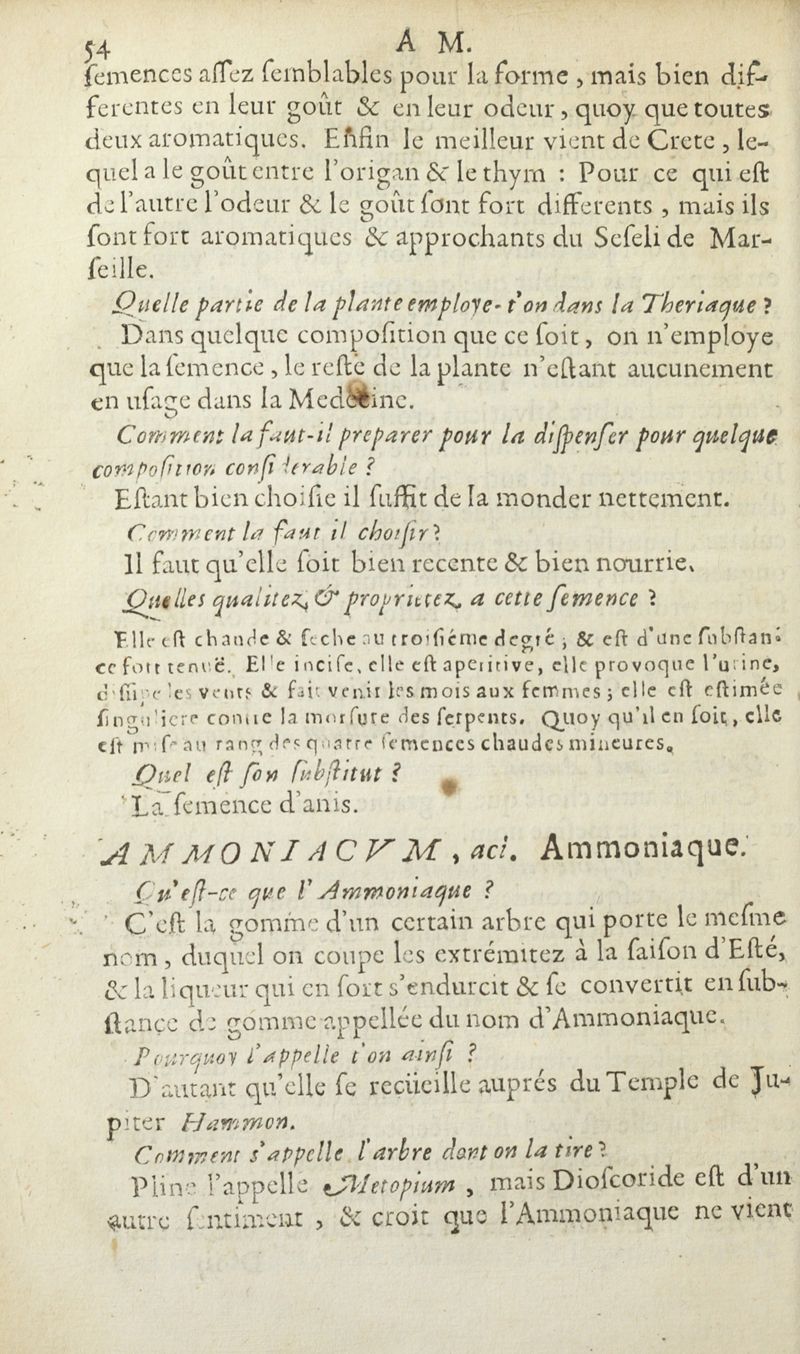 54 A M.
ſemences aſſez ſemblables pour la forme, mais bien dif-
ferentes en leur goût & en leur odeur, quoy que toutes
deux aromatiques. Enfin le meilleur vient de Crete, le-
quel a le goût entre l'origan & le thym : Pour ce qui eſt
de l'autre l'odeur & le goût ſont fort differents, mais ils
ſont fort aromatiques & approchants du Seſeli de Mar-
ſeille.
Quelle partie de la plante employe-t'on dans la Theriaque ?
Dans quelque compoſition que ce ſoit, on n'employe
que la ſemence, le reſte de la plante n'eſtant aucunement
en uſage dans la Medecine.
Comment la faut-il preparer pour la diſpenſer pour quelque
compoſition conſiderable ?
Eſtant bien choiſie il ſuffit de la monder nettement.
Comment la faut il choiſir ?
Il faut qu'elle ſoit bien recente & bien nourrie.
Quelles qualitez, & proprietez, a cette ſemence ?
Elle eſt chaude & ſeche au troiſiéme degré ; & eſt d'une ſubſtan-
ce fort tenuë. Elle inciſe, elle eſt aperitive, elle provoque l'urine,
diſſipe les vents & fait venir les mois aux femmes ; elle eſt eſtimée
ſinguliere contre la morſure des ſerpents. Quoy qu'il en ſoit, elle
eſt miſe au rang des quatre ſemences chaudes mineures.
Quel eſt ſon ſubſtitut ?
La ſemence d'anis.
AMMONIACVM, aci. Ammoniaque.
Qu'eſt-ce que l'Ammoniaque ?
C'eſt la gomme d'un certain arbre qui porte le meſme
nom, duquel on coupe les extrémitez à la ſaiſon d'Eſté,
& la liqueur qui en ſort s'endurcit & ſe convertit en ſub-
ſtance de gomme appellée du nom d'Ammoniaque.
Pourquoy l'appelle t'on ainſi ?
D'autant qu'elle ſe recüeille auprés du Temple de Ju-
piter Hammon.
Comment s'appelle l'arbre dont on la tire ?
Pline l'appelle Metopium, mais Dioſcoride eſt d'un
autre ſentiment, & croit que l'Ammoniaque ne vient